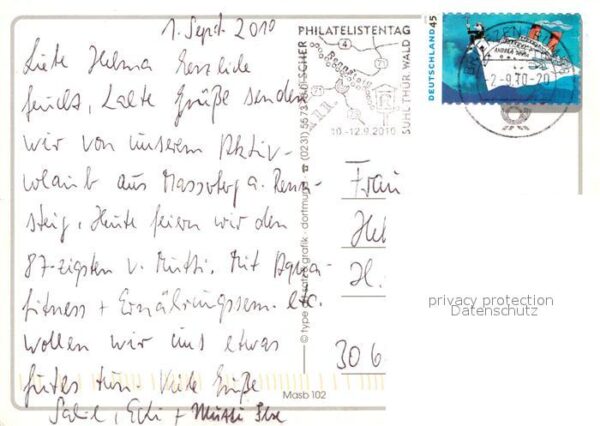 1. Sept 2010
Liebe Helma herzliche
feucht, kalte Grüße senden
wir von unserem Aktiv-
urlaub aus Masserberg a. Renn-
steig. Heute feiern wir den
87-zigsten v. Mutti. Mit Aqua-
fitness + Ernährungssem. etc.
wollen wir uns etwas
gutes tun. Viele Grüße
+ Mutti Ilse
PHILATELISTENTAG
SUHL THÜR. WALD
Rennsteig
10.-12.9.2010
DEUTSCHLAND 45
2.-9.10.-20
Frau
Hel
H.
306
© type + satz + grafik · dortmund · ☎ (0231) 5573
Masb 102
privacy protection
Datenschutz